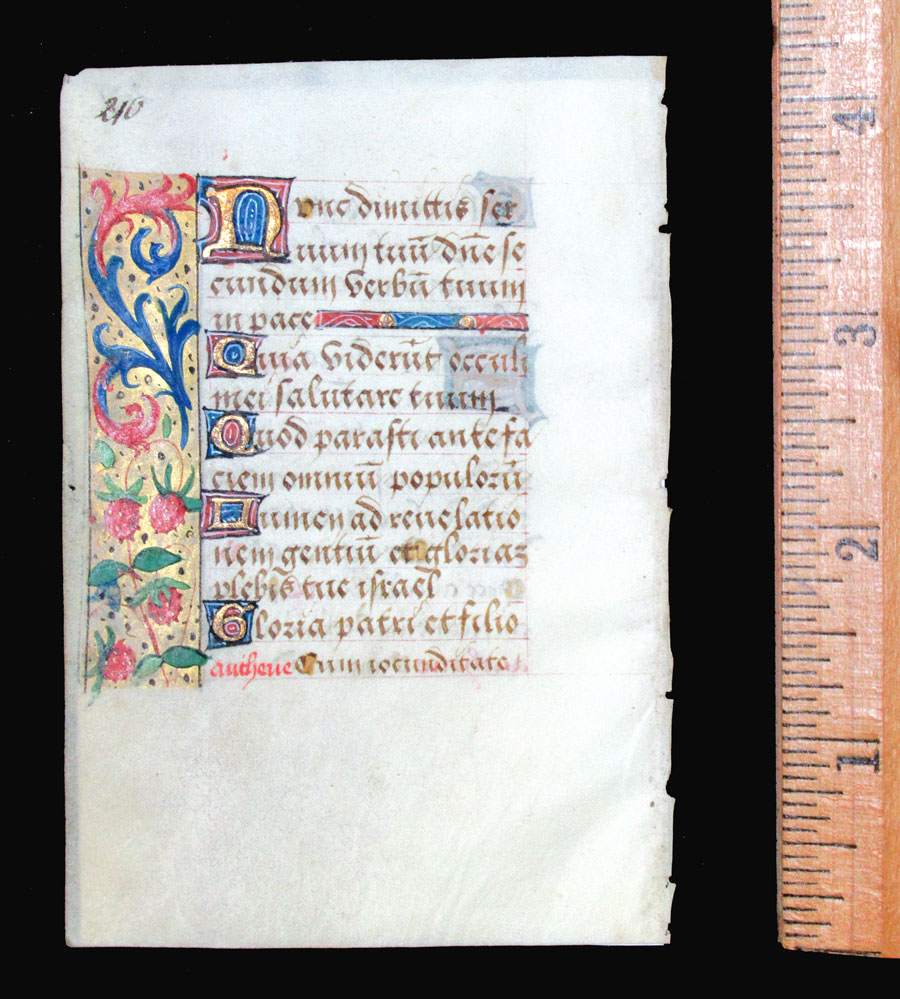 210
Nunc dimittis ser
uum tuū dn̄e se
cundum verbū tuum
in pace
Quia viderūt occuli
mei salutare tuum
Quod parasti ante fa
ciem omniū populorū
Lumen ad reuelatio
nem gentiū et gloriaz
plebis tue israel
Gloria patri et filio
Cum iocunditate
4
3
2
1